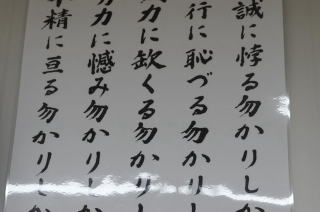 誠に悖る勿かりしか
行に恥づる勿かりし
力に欠くる勿かりし
力に憾み勿かりしか
精に亘る勿かりしか